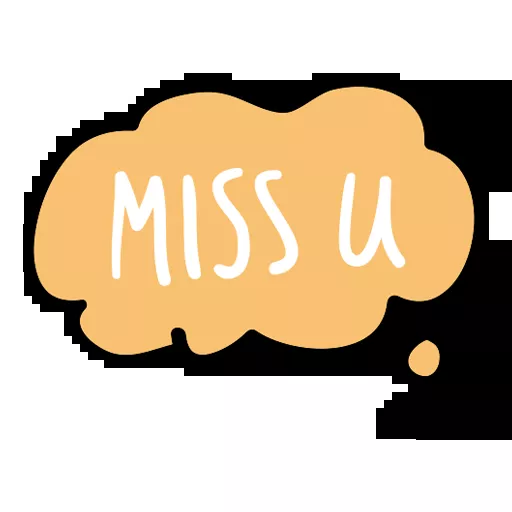 MISS U